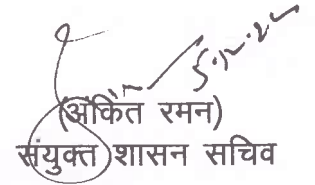 5.12.22
(अंकित रमन)
संयुक्त शासन सचिव